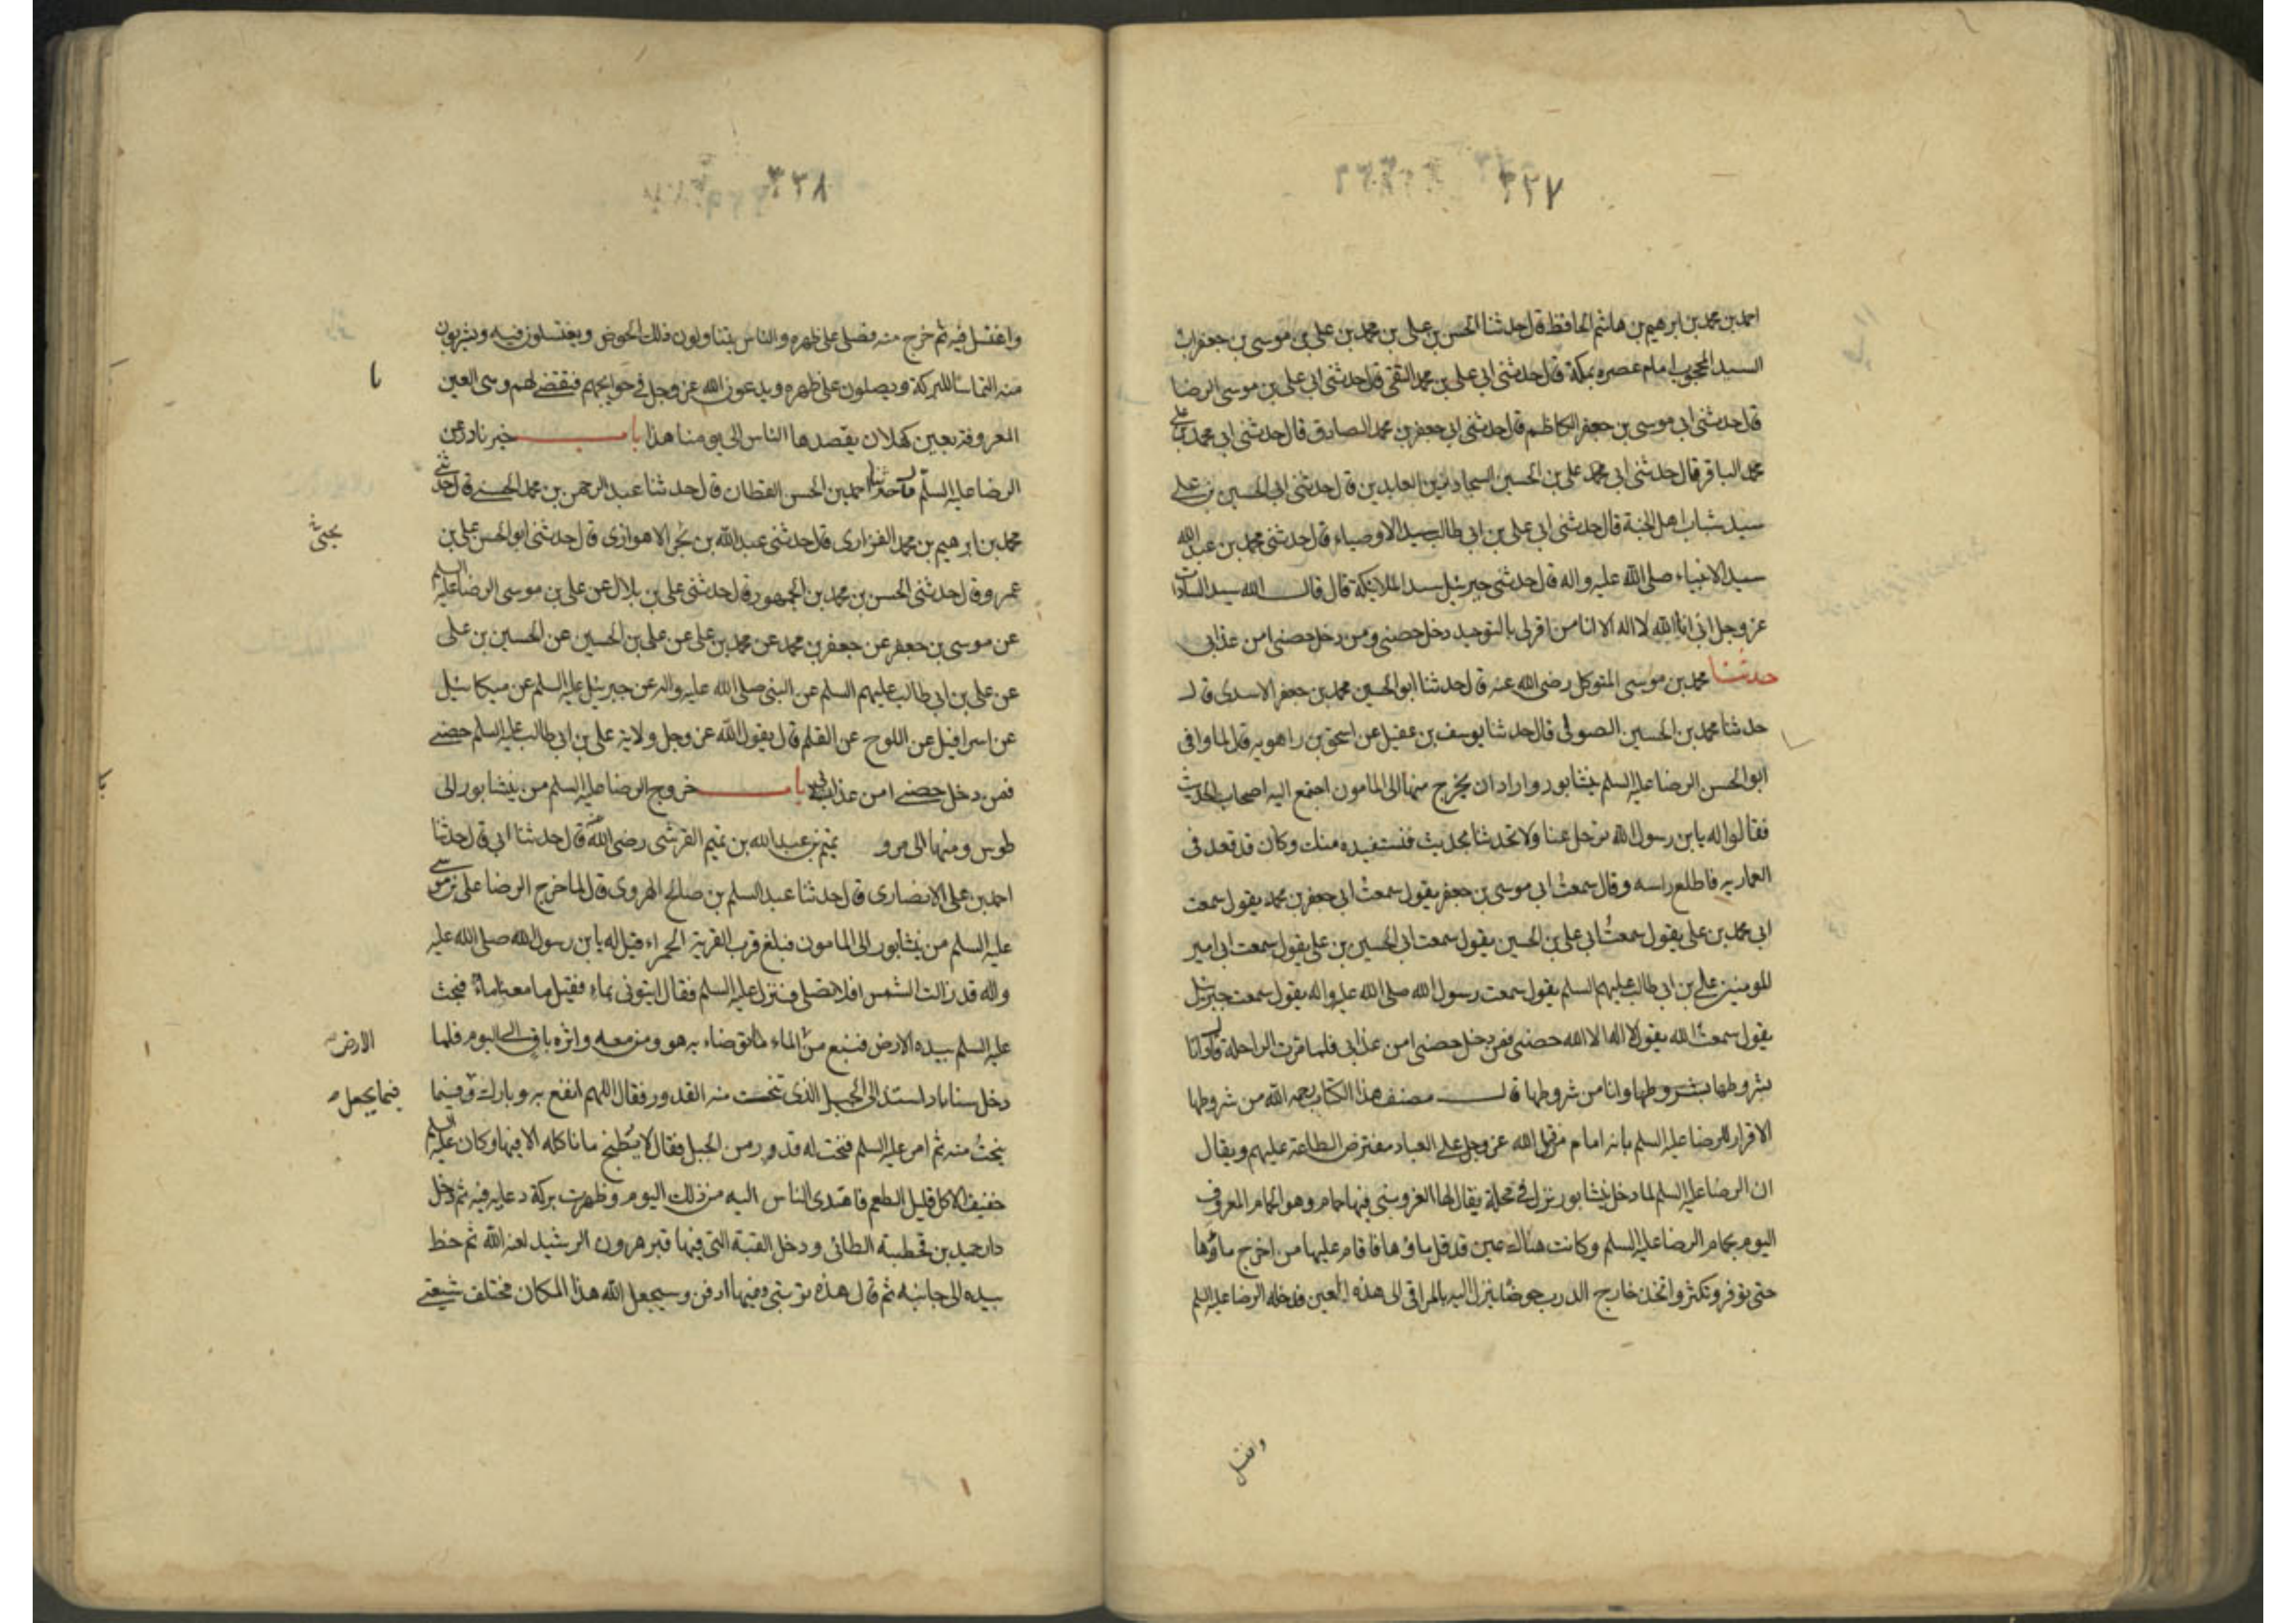 ٣٢٧
احمد بن محمد بن ابرهيم بن هاشم الحافظ قال حدثنا الحسن بن على بن محمد بن على بن موسى بن جعفر
السيد المحجوب امام عصره بمكة قال حدثنى ابى على بن محمد النقى قال حدثنى ابى على بن موسى الرضا
قال حدثنى ابى موسى بن جعفر الكاظم قال حدثنى ابى جعفر بن محمد الصادق قال حدثنى ابى محمد بن على
محمد الباقر قال حدثنى ابى محمد على بن الحسين السجاد زين العابدين قال حدثنى ابى الحسين بن على
سيد شباب اهل الجنة قال حدثنى ابى على بن ابى طالب سيد الاوصياء قال حدثنى محمد بن عبد الله
سيد الانبياء صلى الله عليه واله قال حدثنى جبرئيل سيد الملائكة قال قال الله سيد السادات
عز وجل انى انا الله لا اله الا انا من اقر لى بالتوحيد دخل حصنى ومن دخل حصنى امن عذابى
حدثنا محمد بن موسى المتوكل رضى الله عنه قال حدثنا ابو الحسين محمد بن جعفر الاسدى قال
حدثنا محمد بن الحسين الصوفى قال حدثنا يوسف بن عقيل عن اسحق بن راهويه قال لما وافى
ابو الحسن الرضا عليه السلم نيشابور واراد ان يخرج منها الى المامون اجتمع اليه اصحاب الحديث
فقالوا له يا بن رسول الله ترحل عنا ولا تحدثنا بحديث فنستفيده منك وكان قد قعد فى
العماريه فاطلع راسه وقال سمعت ابى موسى بن جعفر يقول سمعت ابى جعفر بن محمد يقول سمعت
ابى محمد بن على يقول سمعت ابى على بن الحسين يقول سمعت ابى الحسين بن على يقول سمعت ابى امير
المومنين على بن ابى طالب عليهم السلم يقول سمعت رسول الله صلى الله عليه واله يقول سمعت جبرئيل
يقول سمعت الله يقول لا اله الا الله حصنى فمن دخل حصنى امن عذابى فلما مرت الراحلة نادانا
بشروطها بشروطها وانا من شروطها قال مصنف هذا الكتاب رحمه الله من شروطها
الاقرار للرضا عليه السلم بانه امام من قبل الله عز وجل على العباد مفترض الطاعة عليهم ويقال
ان الرضا عليه السلم لما دخل نيشابور نزل فى محلة يقال لها الغزوينى فيها حمام وهو الحمام المعروف
اليوم بحمام الرضا عليه السلم وكانت هناك عين قد قل ماؤها فاقام عليها من اخرج ماؤها
حتى توفر وتكثر واتخذ خارج الدرب حوضا ينزل اليه بالمراقى الى هذه العين فدخله الرضا عليه السلم
واغتسل
٣٢٨
واغتسل فيه ثم خرج منه فصلى على ظهره والناس يتناولون ذلك الحوض ويغتسلون فيه ويشربون
منه التماسا للبركة ويصلون على ظهره ويدعون الله عز وجل فى حوايجهم فيقضى لهم وسى العين
المعروفة بعين كهلان يقصدها الناس الى يومنا هذا باب خبر نادر عن
الرضا عليه السلم قال حدثنا احمد بن الحسن القطان قال حدثنا عبد الرحمن بن محمد الحسنى قال حدثنى
محمد بن ابرهيم بن محمد الفزارى قال حدثنى عبد الله بن بحر الاهوازى قال حدثنى ابو الحسن على بن
يحيى
عمرو قال حدثنى الحسن بن محمد بن الجمهور قال حدثنى على بن بلال عن على بن موسى الرضا عليه السلم
عن موسى بن جعفر عن جعفر بن محمد عن محمد بن على عن على بن الحسين عن الحسين بن على
عن على بن ابى طالب عليهم السلم عن النبى صلى الله عليه واله عن جبرئيل عليه السلم عن ميكائيل
عن اسرافيل عن اللوح عن القلم قال يقول الله عز وجل ولاية على بن ابى طالب عليه السلم حصنى
فمن دخل حصنى امن عذابى باب خروج الرضا عليه السلم من نيشابور الى
طوس ومنها الى مرو تميم بن عبد الله بن تميم القرشى رضى الله عنه قال حدثنا ابى قال حدثنا
احمد بن على الانصارى قال حدثنا عبد السلم بن صالح الهروى قال لما خرج الرضا على بن موسى
عليه السلم من نيشابور الى المامون فبلغ قرب القرية الحمراء قيل له يا بن رسول الله صلى الله عليه
واله قد زالت الشمس افلا تصلى فنزل عليه السلم فقال ايتونى بماء فقيل ما معنا ماء فبحث
عليه السلم بيده الارض فنبع من الماء ما توضاء به هو ومن معه واثره باق الى اليوم فلما
الارض
دخل سناباد استند الى الجبل الذى تنحت منه القدور فقال اللهم انفع به وبارك فيما
فيما يجعل
ينحت منه ثم امر عليه السلم فنحت له قدور من الجبل فقال لا يطبخ ما نا كله الا فيها وكان عليه السلم
خفيف الاكل قليل الطعم فاهتدى الناس اليه من ذلك اليوم وظهرت بركة دعايه فيه ثم دخل
دار حميد بن قحطبة الطائى ودخل القبة التى فيها قبر هرون الرشيد لعنه الله ثم خط
بيده الى جانبه ثم قال هذه تربتى وفيها ادفن وسيجعل الله هذا المكان مختلف شيعتى